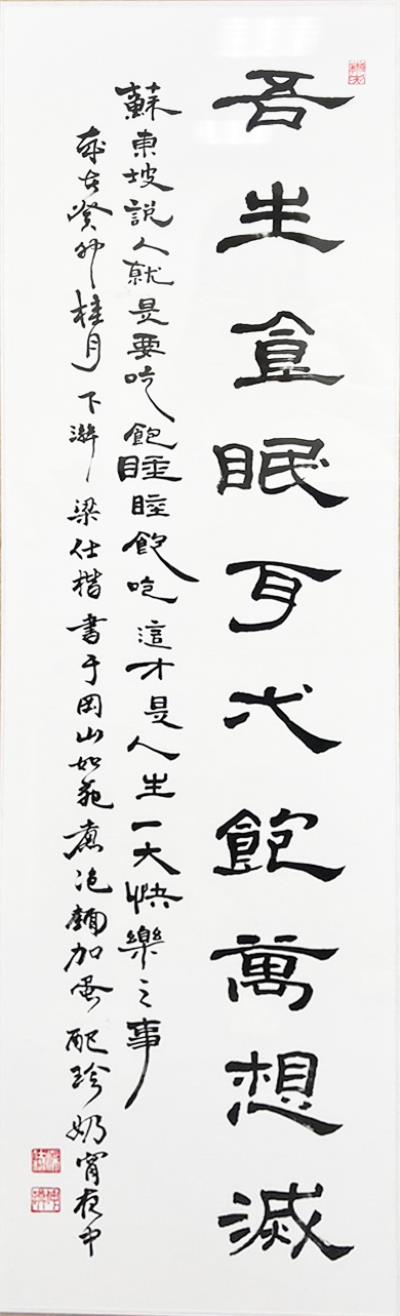 吾生食眠耳弌飽萬想滅
蘇東坡說人就是要吃飽睡睡飽吃這才是人生一大快樂之事
歲在癸卯桂月下澣梁仕楷書于岡山如苑煮泡麵加蛋配珍奶宵夜中